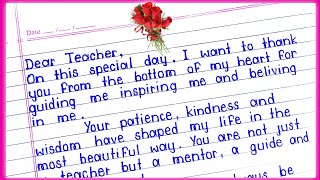 Date __/__/__
Dear Teacher,
On this special day, I want to thank
you from the bottom of my heart for
guiding me inspiring me and beliving
in me.
Your patience, kindness and
wisdom have shaped my life in the
most beautiful way. You are not just
a teacher but a mentor, a guide and
always be